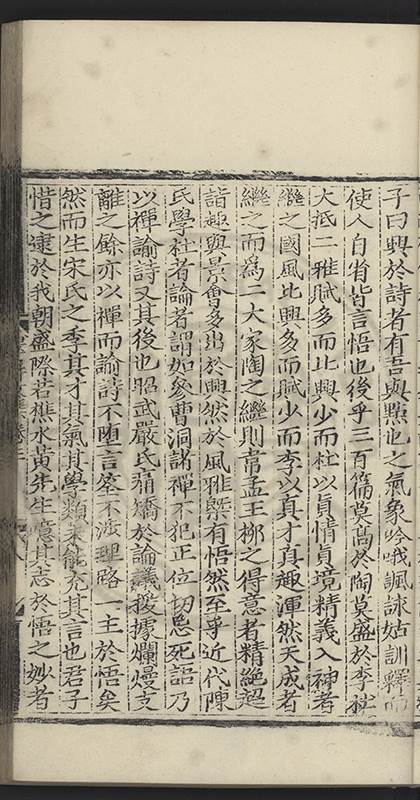 子曰興於詩者有吾與點也之氣象吟哦諷詠姑訓釋而
使人自省皆言悟也後乎三百篇莫高於陶莫盛於李杜
大抵二雅賦多而比興少而杜以貞情貞境精義入神者
繼之國風比興多而賦少而李以真才真趣渾然天成者
繼之而為二大家陶之繼則韋孟王栁之得意者精絶超
詣趣與景會多出於興然於風雅槩有悟然至乎近代陳
氏學杜者論者謂如參曹洞諸禪不犯正位切忌死語乃
以禪諭詩又其後也昭武嚴氏痛矯於論議援據爛熳支
離之餘亦以禪而諭詩不墮言筌不涉理路一主於悟矣
然而生宋氏之季其才其氣其學類未能充其言也君子
惜之逮於我朝盛際若樵水黄先生噫其志於悟之妙者